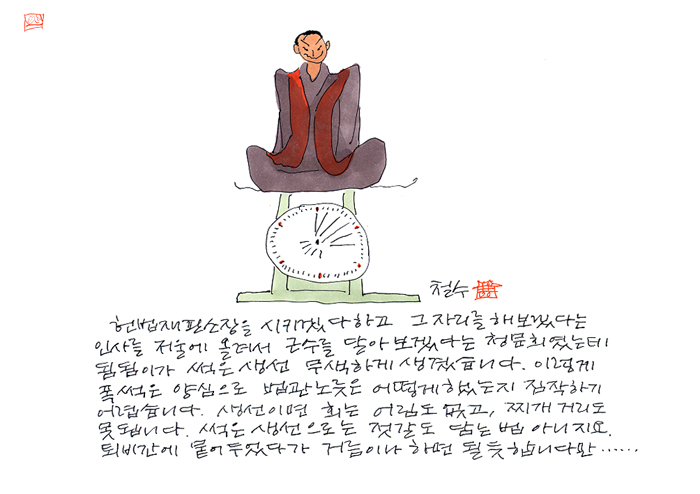 철수
헌법재판소장을 시키겠다하고 그 자리를 해보겠다는
인사를 저울에 올려서 근수를 달아보겠다는 청문회였는데
됨됨이가 썩은 생선 무색하게 생겼습니다. 이렇게
폭썩은 양심으로 법관노릇은 어떻게 했는지 짐작하기
어렵습니다. 생선이면 회는 어림도 없고, 찌개거리도
못됩니다. 썩은 생선으로는 젓갈도 담는 법 아니지요.
퇴비간에 묻어두었다가 거름이나 하면 될 듯합니다만……